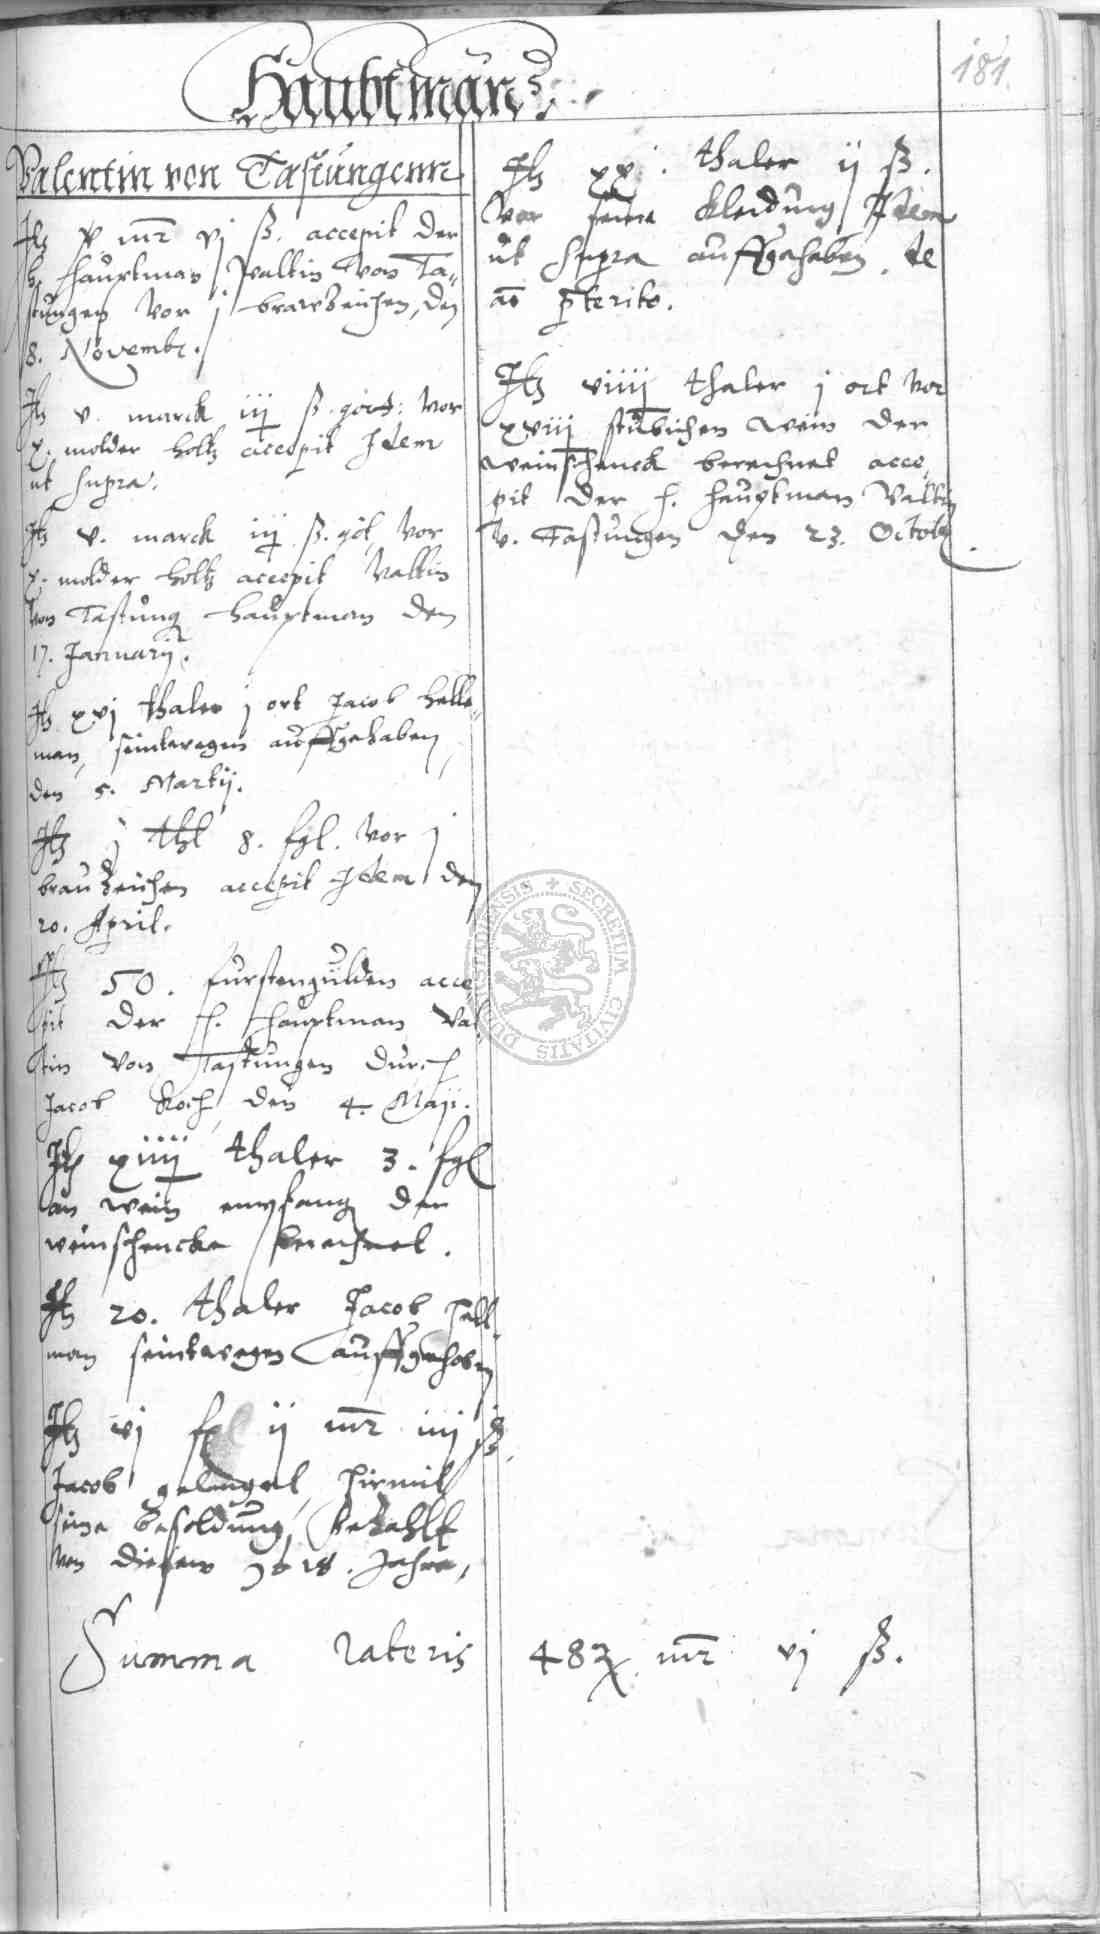 181.
Haubtman
Valentin von Tastungenn
Itz v mr vj ß. accepit der
h. hauptman Valtin von Ta-
stungen vor j brawzeichen, den
8. Novembr.
Itz v. marck iij ß. gött: vor
x. molder holtz accepit Idem
ut supra.
Itz v. marck iij ß. göt vor
x. molder holtz accepit Valtin
von Tastung hauptman den
17. Januarij.
Itz xvj thaler j ort Jacob Helle-
man, seintwegen auffgehaben
den 5. Martij.
Itz j thl 8. fgl. vor j
brauzeichen accepit Idem den
20. April.
Itz 50. furstengulden acce-
pit der h. hauptman Val-
tin von Tastungen durch
Jacob Koch den 4. Maji.
Itz xiiij thaler 3. fgl
an wein empfang der
weinschencke berechnet.
Itz 20. thaler Jacob Hell-
man seintwegen auffgehoben
Itz vj fgl ij mr iiij ß.
Jacob gelanget, hirmit
sine besoldung bezahlt
von diesem 1618. Jahre,
Itz xx thaler ij ß.
vor seine kleidung Idem
ut supra auffgehaben, de
ao pterito.
Itz viiij thaler j ort vor
xviij stubichen wein der
weinschenck berechnet acce-
pit der h. hauptman Valtin
v. Tastungen den 23. Octob
Summa lateris 482 mr vj ß.
SECRETUM CIVITATIS DUDERSTADIENSIS